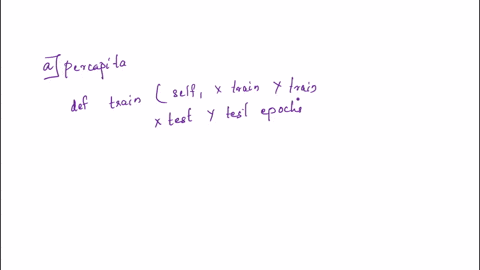 a] percapita
def train ( self, x train y train
x test y test epochs